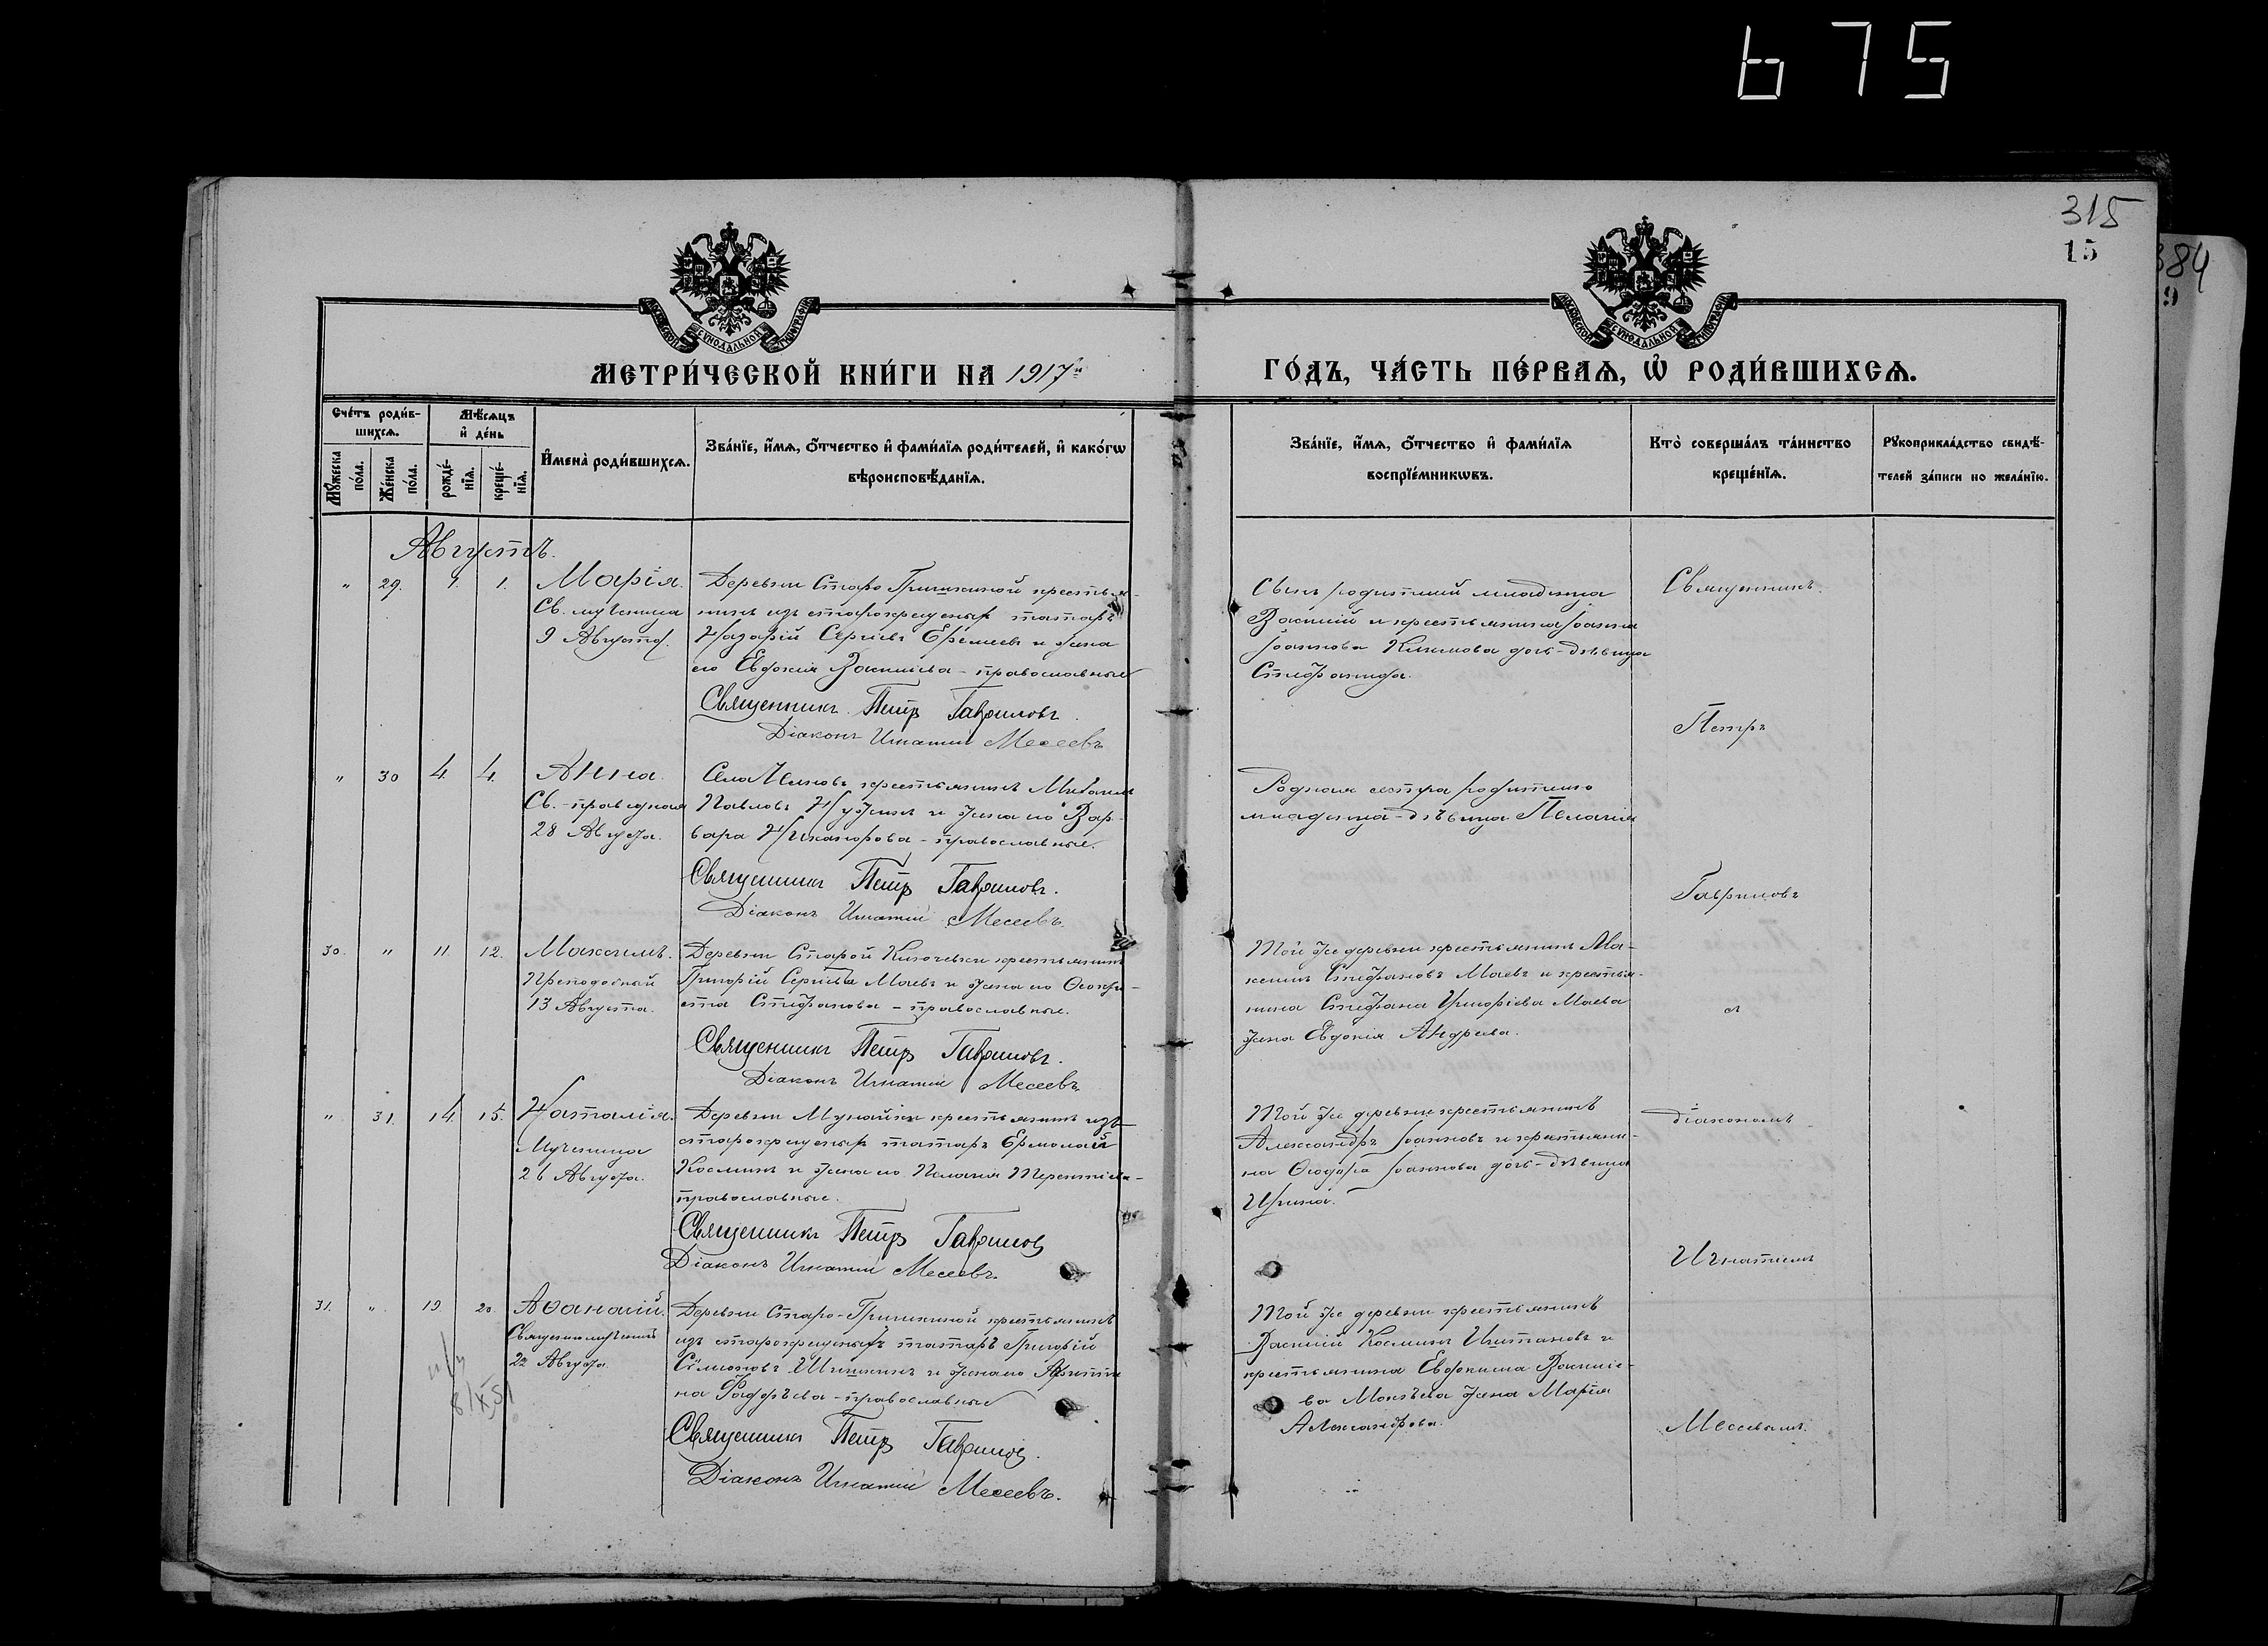 675
315
15
384
9
МОСКОВСКОЙ СѴНОДАЛЬНОЙ ТИПОГРАФІИ
МОСКОВСКОЙ СѴНОДАЛЬНОЙ ТИПОГРАФІИ
МЕТРИ́ЧЕСКОЙ КНИ́ГИ НА 1917й
ГО́ДЪ, ЧА́СТЬ ПЕ́РВАѦ, Ѡ҆ РОДИ́ВШИХСѦ.
Сче́тъ роди́в-
шихсѧ.
Мѣ́сѧцъ
и҆ де́нь
Мꙋ́жеска
по́ла.
Же́нска
по́ла.
рожде́-
нїѧ.
креще́-
нїѧ.
И҆мена̀ роди́вшихсѧ.
Зва́нїе, и҆́мѧ, ѻ҆́тчество и҆ фами́лїѧ роди́телей, и҆ како́гѡ
вѣроисповѣ́данїѧ.
Зва́нїе, и҆́мѧ, ѻ҆́тчество и҆ фами́лїѧ
воспрїе́мникѡвъ.
Кто̀ соверша́лъ та́инство
креще́нїѧ.
Рꙋкоприкла́дство свидѣ́-
телей за́писи по жела́нїю.
Августъ.
" 29. 1. 1. Марія.
Св. мученица
9 Августа.
Деревни Старо Гришкиной крестья-
нинъ изъ старокрещеныхъ татаръ
Назарій Сергіевъ Еремеевъ и жена
его Евдокія Васильева - православные
Священникъ Петръ Гавриловъ.
Діаконъ Игнатий Месеевъ
Сынъ родителей младенца
Василій и крестьянина Іоанна
Іоаннова Климова дочь-девица
Стефанида.
Священникъ
Петръ
" 30 4. 4. Анна.
Св.-праведная
28 Августа.
Села крестьянинъ Михаилъ
Павловъ и жена его Вар-
вара Никанорова - православные.
Священникъ Петръ Гавриловъ.
Діаконъ Игнатий Месеевъ
Родная сестра родителю
младенца - дѣвица Пелагія
Гавриловъ
30. " 11. 12. Максимъ.
Преподобный
13 Августа.
Деревни Старой крестьянинъ
Григорій Сергіевъ Маевъ и жена его Ѳеокти-
ста Стефанова - православные.
Священникъ Петръ Гавриловъ.
Діаконъ Игнатий Месеевъ
Той же деревни крестьянинъ Мак-
симъ Стефановъ Маевъ и крестья-
нина Стефана Григоріева Маева
жена Евдокія Андреева.
съ
" 31. 14. 15. Наталія.
Мученица
26 Августа.
Деревни Мунайки крестьянинъ изъ
старокрещеныхъ татаръ Ермолай
Косминъ и жена его Пелагія Терентіева -
православные.
Священникъ Петръ Гавриловъ
Діаконъ Игнатий Месеевъ.
Той же деревни крестьянинъ
Александръ Іоанновъ и крестьяни-
на Ѳеодора Іоаннова дочь-дѣвица
Ирина.
діакономъ
Игнатіемъ
31. " 19. 20. Аѳанасій.
Священномученикъ
22 Августа.
8/X 51
Деревни Старо-Гришкиной крестьянинъ
изъ старокрещеныхъ татаръ Григорій
Симеоновъ Шишкинъ и жена его
на Фаддѣева - православные
Священникъ Петръ Гавриловъ.
Діаконъ Игнатий Месеевъ.
Той же деревни крестьянинъ
Василій Косминъ Игнатьевъ и
крестьянина Евдокима Василіе-
ва жена Марія
Александрова.
Месеевымъ.